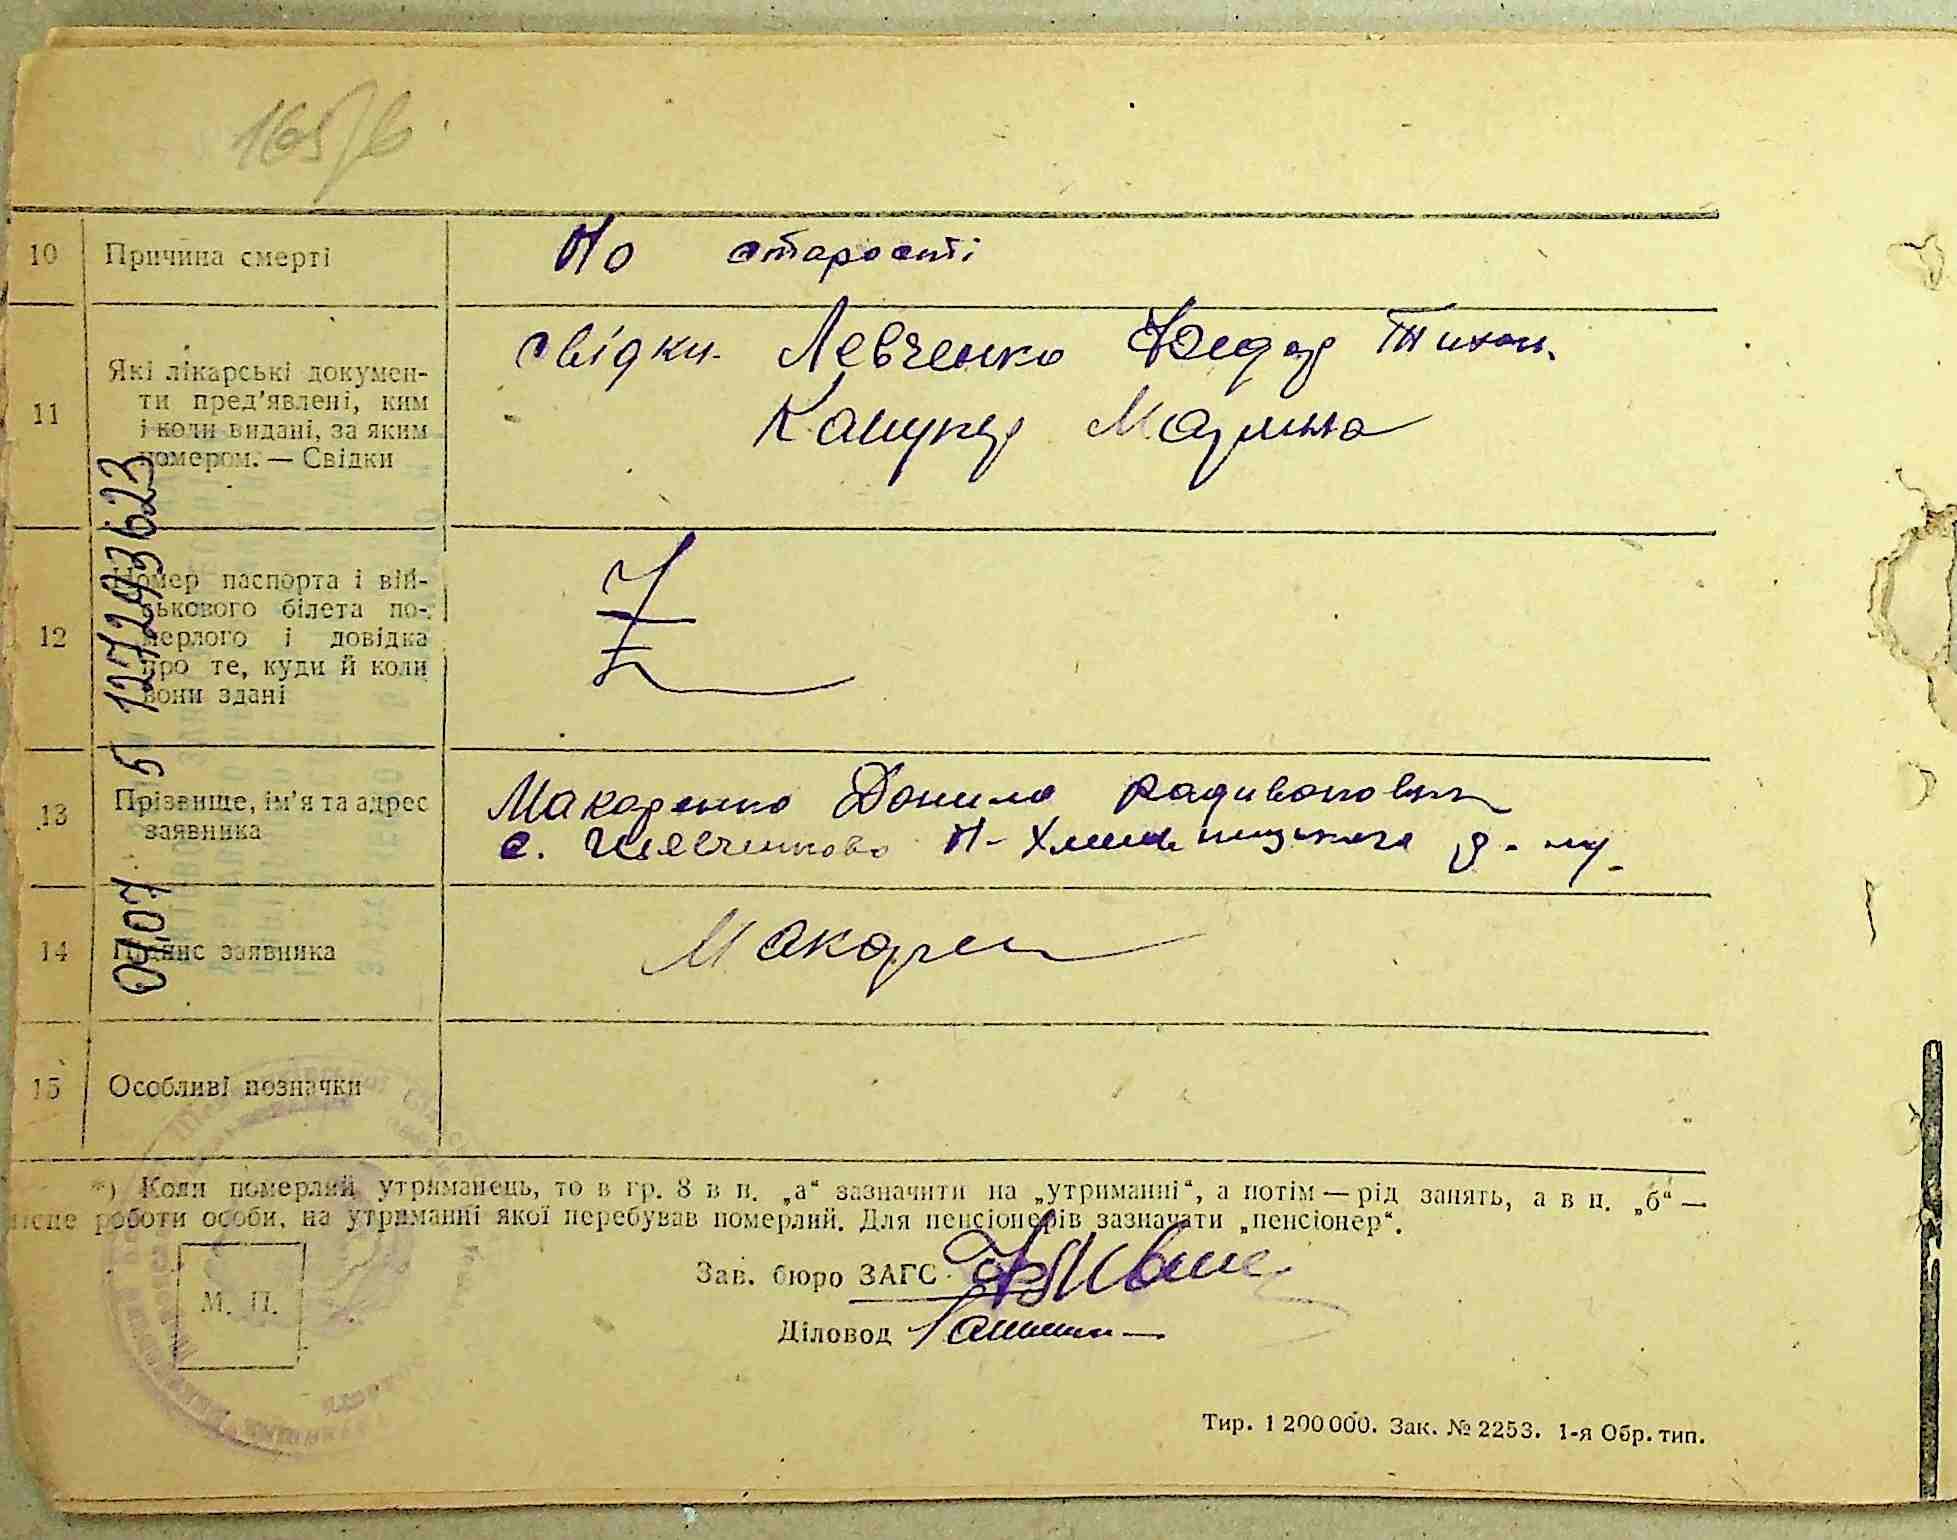 165
10 Причина смерті По старості
11 Які лікарські докумен-
ти пред'явлені, ким
і коли видані, за яким
номером. — Свідки
свідки. Левченко Тихон.
Марина
12 Номер паспорта і вій-
ськового білета по-
мерлого і довідка
про те, куди й коли
вони здані
Z
13 Прізвище, ім'я та адрес
заявника
Макаренко Данило Радивонович
с. Шевченково П-Хмельницького р-ну
14 Підпис заявника
Макарен
15 Особливі позначки
04.07 5 127293623
*) Коли померлий утриманець, то в гр. 8 в п. „а“ зазначити на „утриманні“, а потім — рід занять, а в п. „б“ —
роботи особи, на утриманні якої перебував померлий. Для пенсіонерів зазначати „пенсіонер“.
Зав. бюро ЗАГС
Діловод
М. П.
Тир. 1 200 000. Зак. № 2253. 1-я Обр. тип.